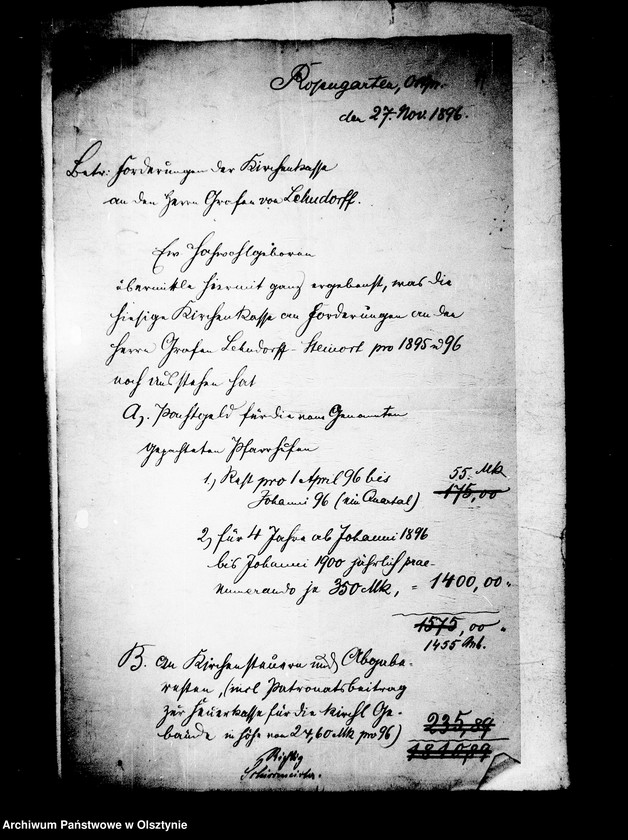 Rosengarten, Ostpr.
den 27. Nov. 1896.
Betr: Forderungen der Kirchenkasse
an den Herrn Grafen von Lehndorff.
Ew Hochwohlgeboren
übermittle hiermit ganz ergebenst, was die
hiesige Kirchenkasse an Forderungen an den
Herrn Grafen Lehndorff Steinort pro 1895 u 96
noch ausstehen hat
A). Pachtgeld für die vom Genannten
gepachteten Pfarrhufen
1) Rest pro 1 April 96 bis 55. Mk
Johanni 96 (ein Quartal) 175,00
2) für 4 Jahre ab Johanni 1896
bis Johanni 1900 jährlich prae-
numerando je 350 Mk, = 1400,00 "
1575,00 "
1455 Mk.
B. An Kirchensteuern und Abgabe-
resten, (incl Patronatsbeitrag
zur Feuerkasse für die kirchl Ge-
bäude in Höhe von 24,60 Mk pro 96) 235,89
1810,89
Richtig
Archiwum Państwowe w Olsztynie